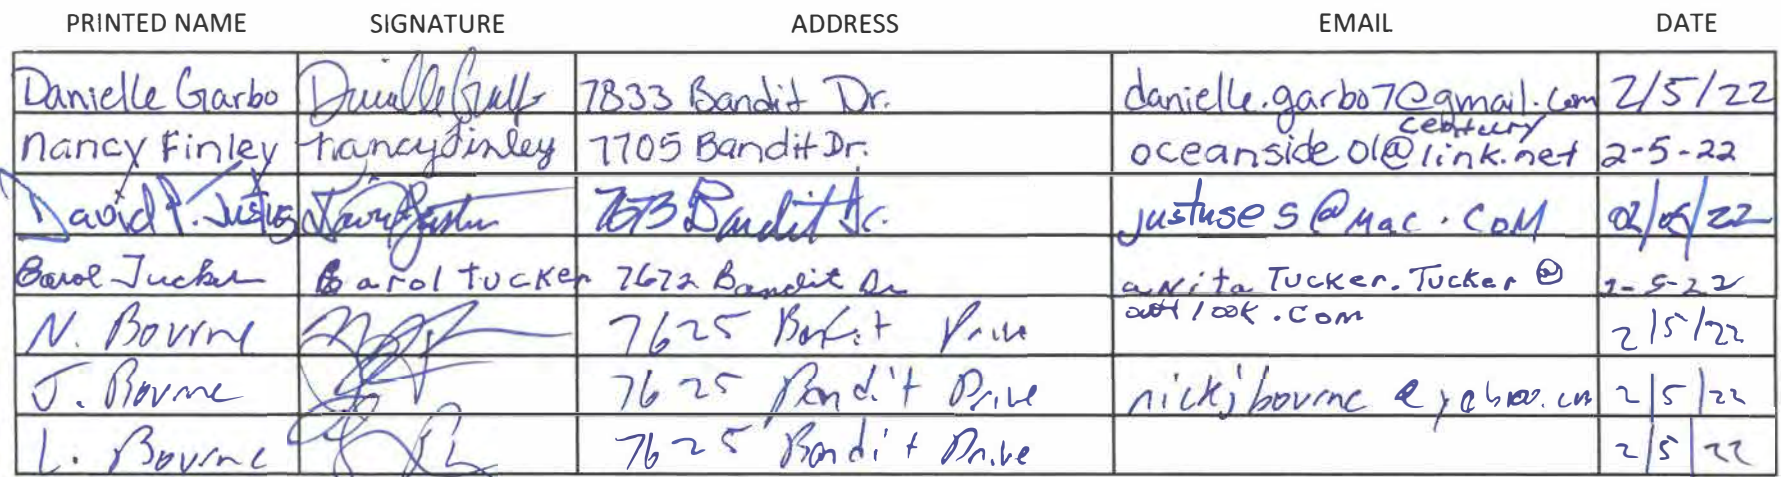 PRINTED NAME SIGNATURE ADDRESS EMAIL DATE
Danielle Garbo 7833 Bandit Dr. danielle.garbo7@gmail.com 2/5/22
Nancy Finley Nancy Finley 7705 Bandit Dr. oceanside01@centurylink.net 2-5-22
David P. Justus 7673 Bandit Dr. justuse5@mac.com 02/05/22
Carol Tucker Carol Tucker 7672 Bandit Dr anitaTucker.Tucker@ 2-5-22
outlook.com
N. Bourne 7625 Bandit Drive 2/5/22
J. Bourne 7625 Bandit Drive nickjbourne@yahoo.com 2/5/22
L. Bourne 7625 Bandit Drive 2/5/22